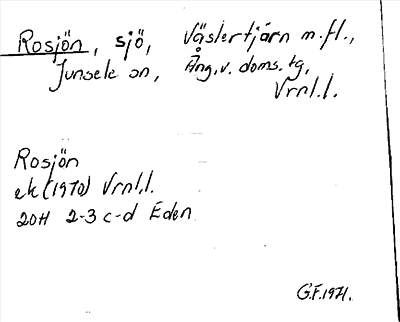 Rosjön, sjö, Västertjärn m.fl.,
Junsele sn, Ång.v. doms.tg,
Vrnl.l.
Rosjön
ek (1970) Vrnl.l.
20H 2-3 c-d Eden
G.F.1971.